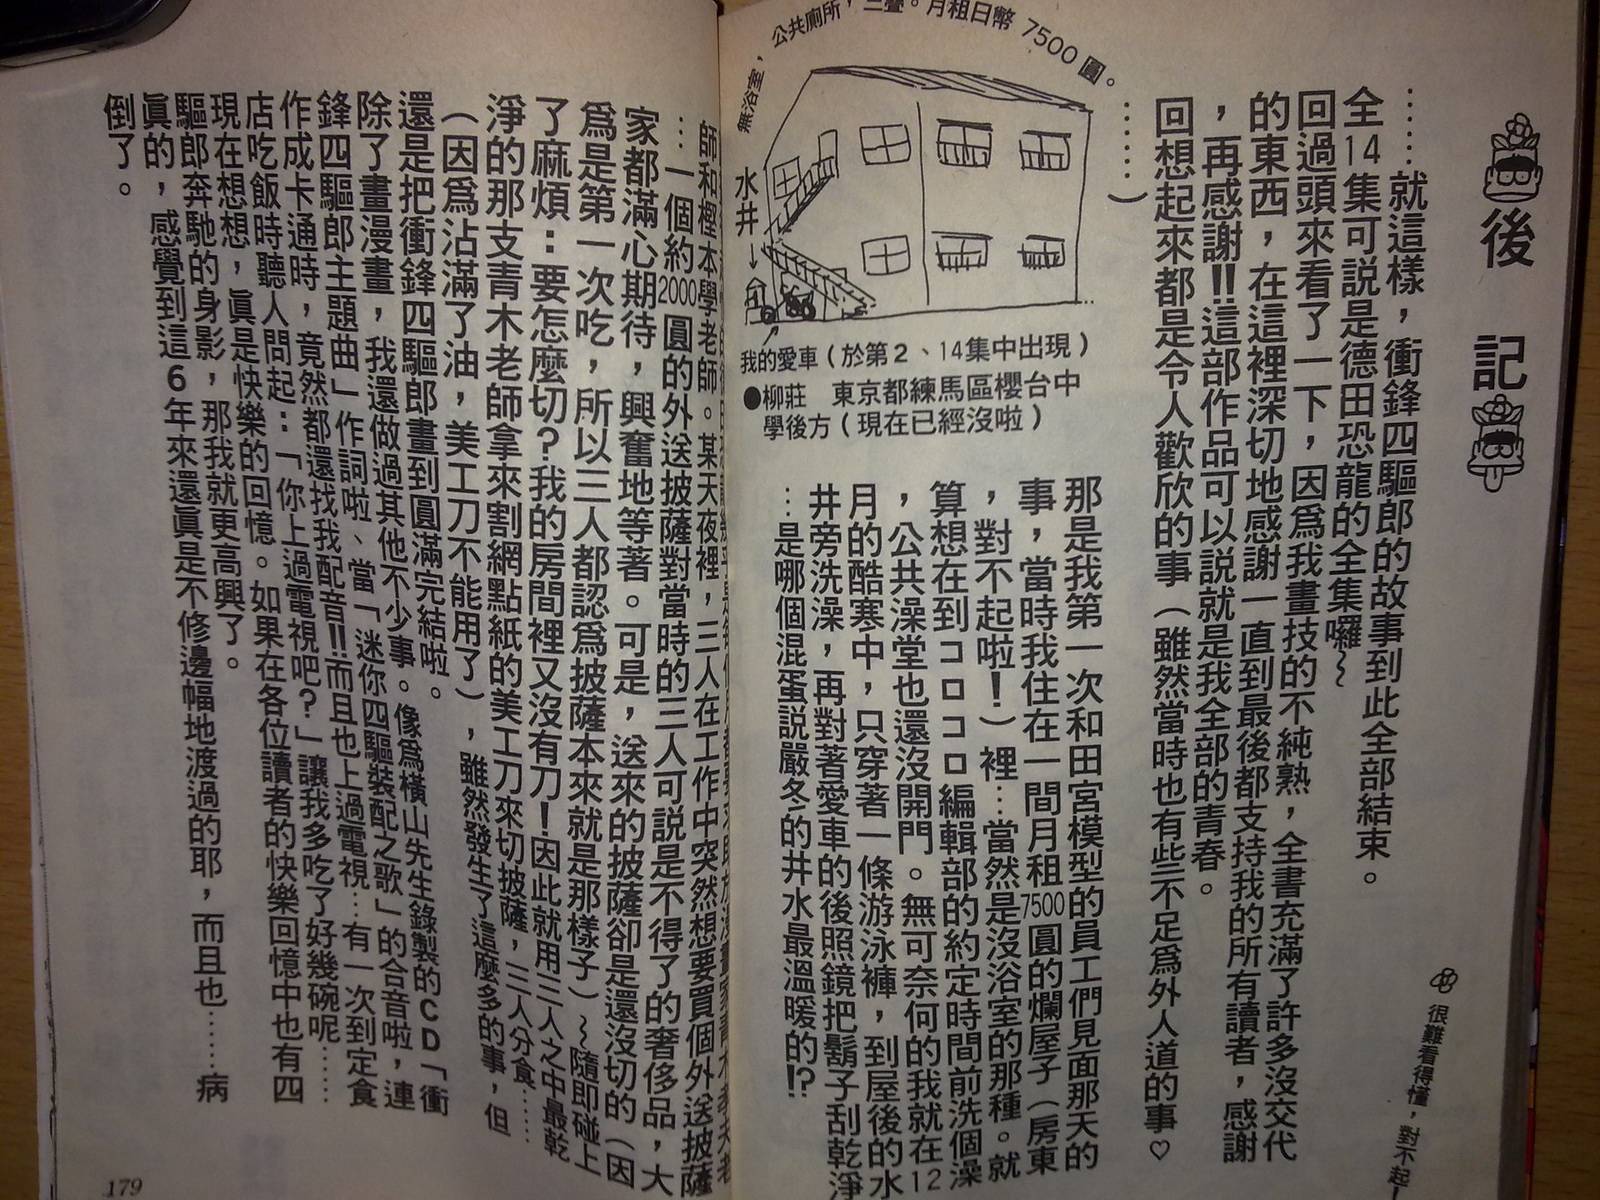 後記
……就這樣，衝鋒四驅郎的故事到此全部結束。
全14集可說是德田恐龍的全集囉～
回過頭來看了一下，因為我畫技的不純熟，全書充滿了許多沒交代
的東西，在這裡深切地感謝一直到最後都支持我的所有讀者，感謝
，再感謝!!這部作品可以說就是我全部的青春。
回想起來都是令人歡欣的事（雖然當時也有些不足為外人道的事♡
……）
很難看得懂，對不起！
無浴室，公共廁所，三疊。月租日幣7500圓。
水井
我的愛車（於第2、14集中出現）
●柳莊　東京都練馬區櫻台中
學後方（現在已經沒啦）
那是我第一次和田宮模型的員工們見面那天的
事，當時我住在一間月租7500圓的爛屋子（房東
，對不起啦！）裡…當然是沒浴室的那種。就
算想在到コロコロ編輯部的約定時間前洗個澡
，公共澡堂也還沒開門。無可奈何的我就在12
月的酷寒中，只穿著一條游泳褲，到屋後的水
井旁洗澡，再對著愛車的後照鏡把鬍子刮乾淨
…是哪個混蛋說嚴冬的井水最溫暖的!?
師和樫本學老師。某天夜裡，三人在工作中突然想要買個外送披薩
…一個約2000圓的外送披薩對當時的三人可說是不得了的奢侈品，大
家都滿心期待，興奮地等著。可是，送來的披薩卻是還沒切的（因
為是第一次吃，所以三人都認為披薩本來就是那樣子）～隨即碰上
了麻煩：要怎麼切？我的房間裡又沒有刀！因此就用三人之中最乾
淨的那支青木老師拿來割網點紙的美工刀來切披薩，三人分食……
（因為沾滿了油，美工刀不能用了），雖然發生了這麼多的事，但
還是把衝鋒四驅郎畫到圓滿完結啦。
除了畫漫畫，我還做過其他不少事。像為橫山先生錄製的CD「衝
鋒四驅郎主題曲」作詞啦、當「迷你四驅裝配之歌」的合音啦，連
作成卡通時，竟然都還找我配音!!而且也上過電視…有一次到定食
店吃飯時聽人問起：「你上過電視吧？」讓我多吃了好幾碗呢……
現在想想，真是快樂的回憶。如果在各位讀者的快樂回憶中也有四
驅郎奔馳的身影，那我就更高興了。
真的，感覺到這6年來還真是不修邊幅地渡過的耶，而且也……病
倒了。
179